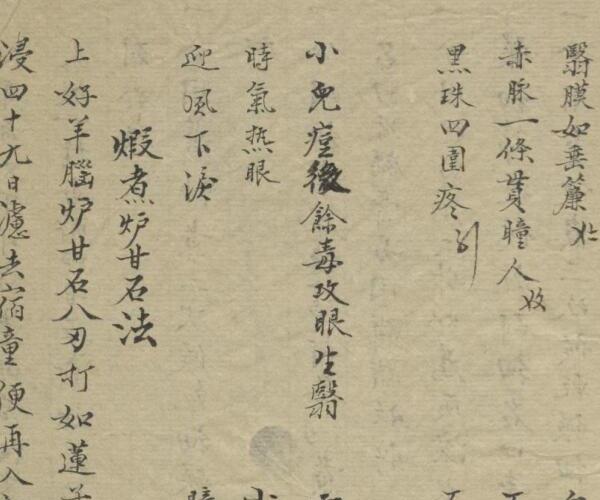 翳膜如垂簾
赤脉一條貫瞳人
黑珠四圍疼
小兒痘後餘毒攻眼生翳
時氣热眼
迎風下淚
煆煮炉甘石法
上好羊腦炉甘石八刄打如蓮子
浸四十九日濾去宿童便再入